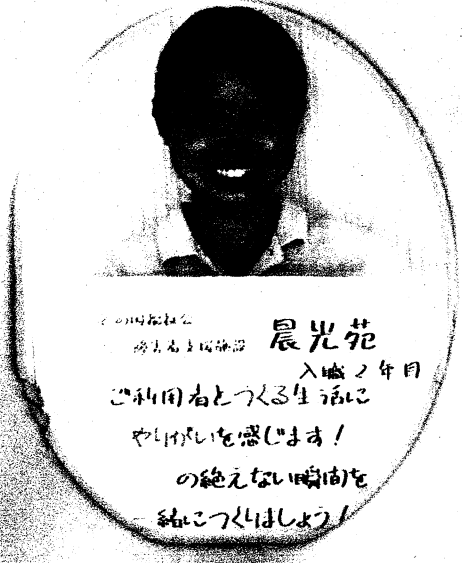 障害者支援施設 晨光苑
入職2年目
ご利用者とつくる生活に
やりがいを感じます!
の絶えない瞬間を
一緒につくりましょう!